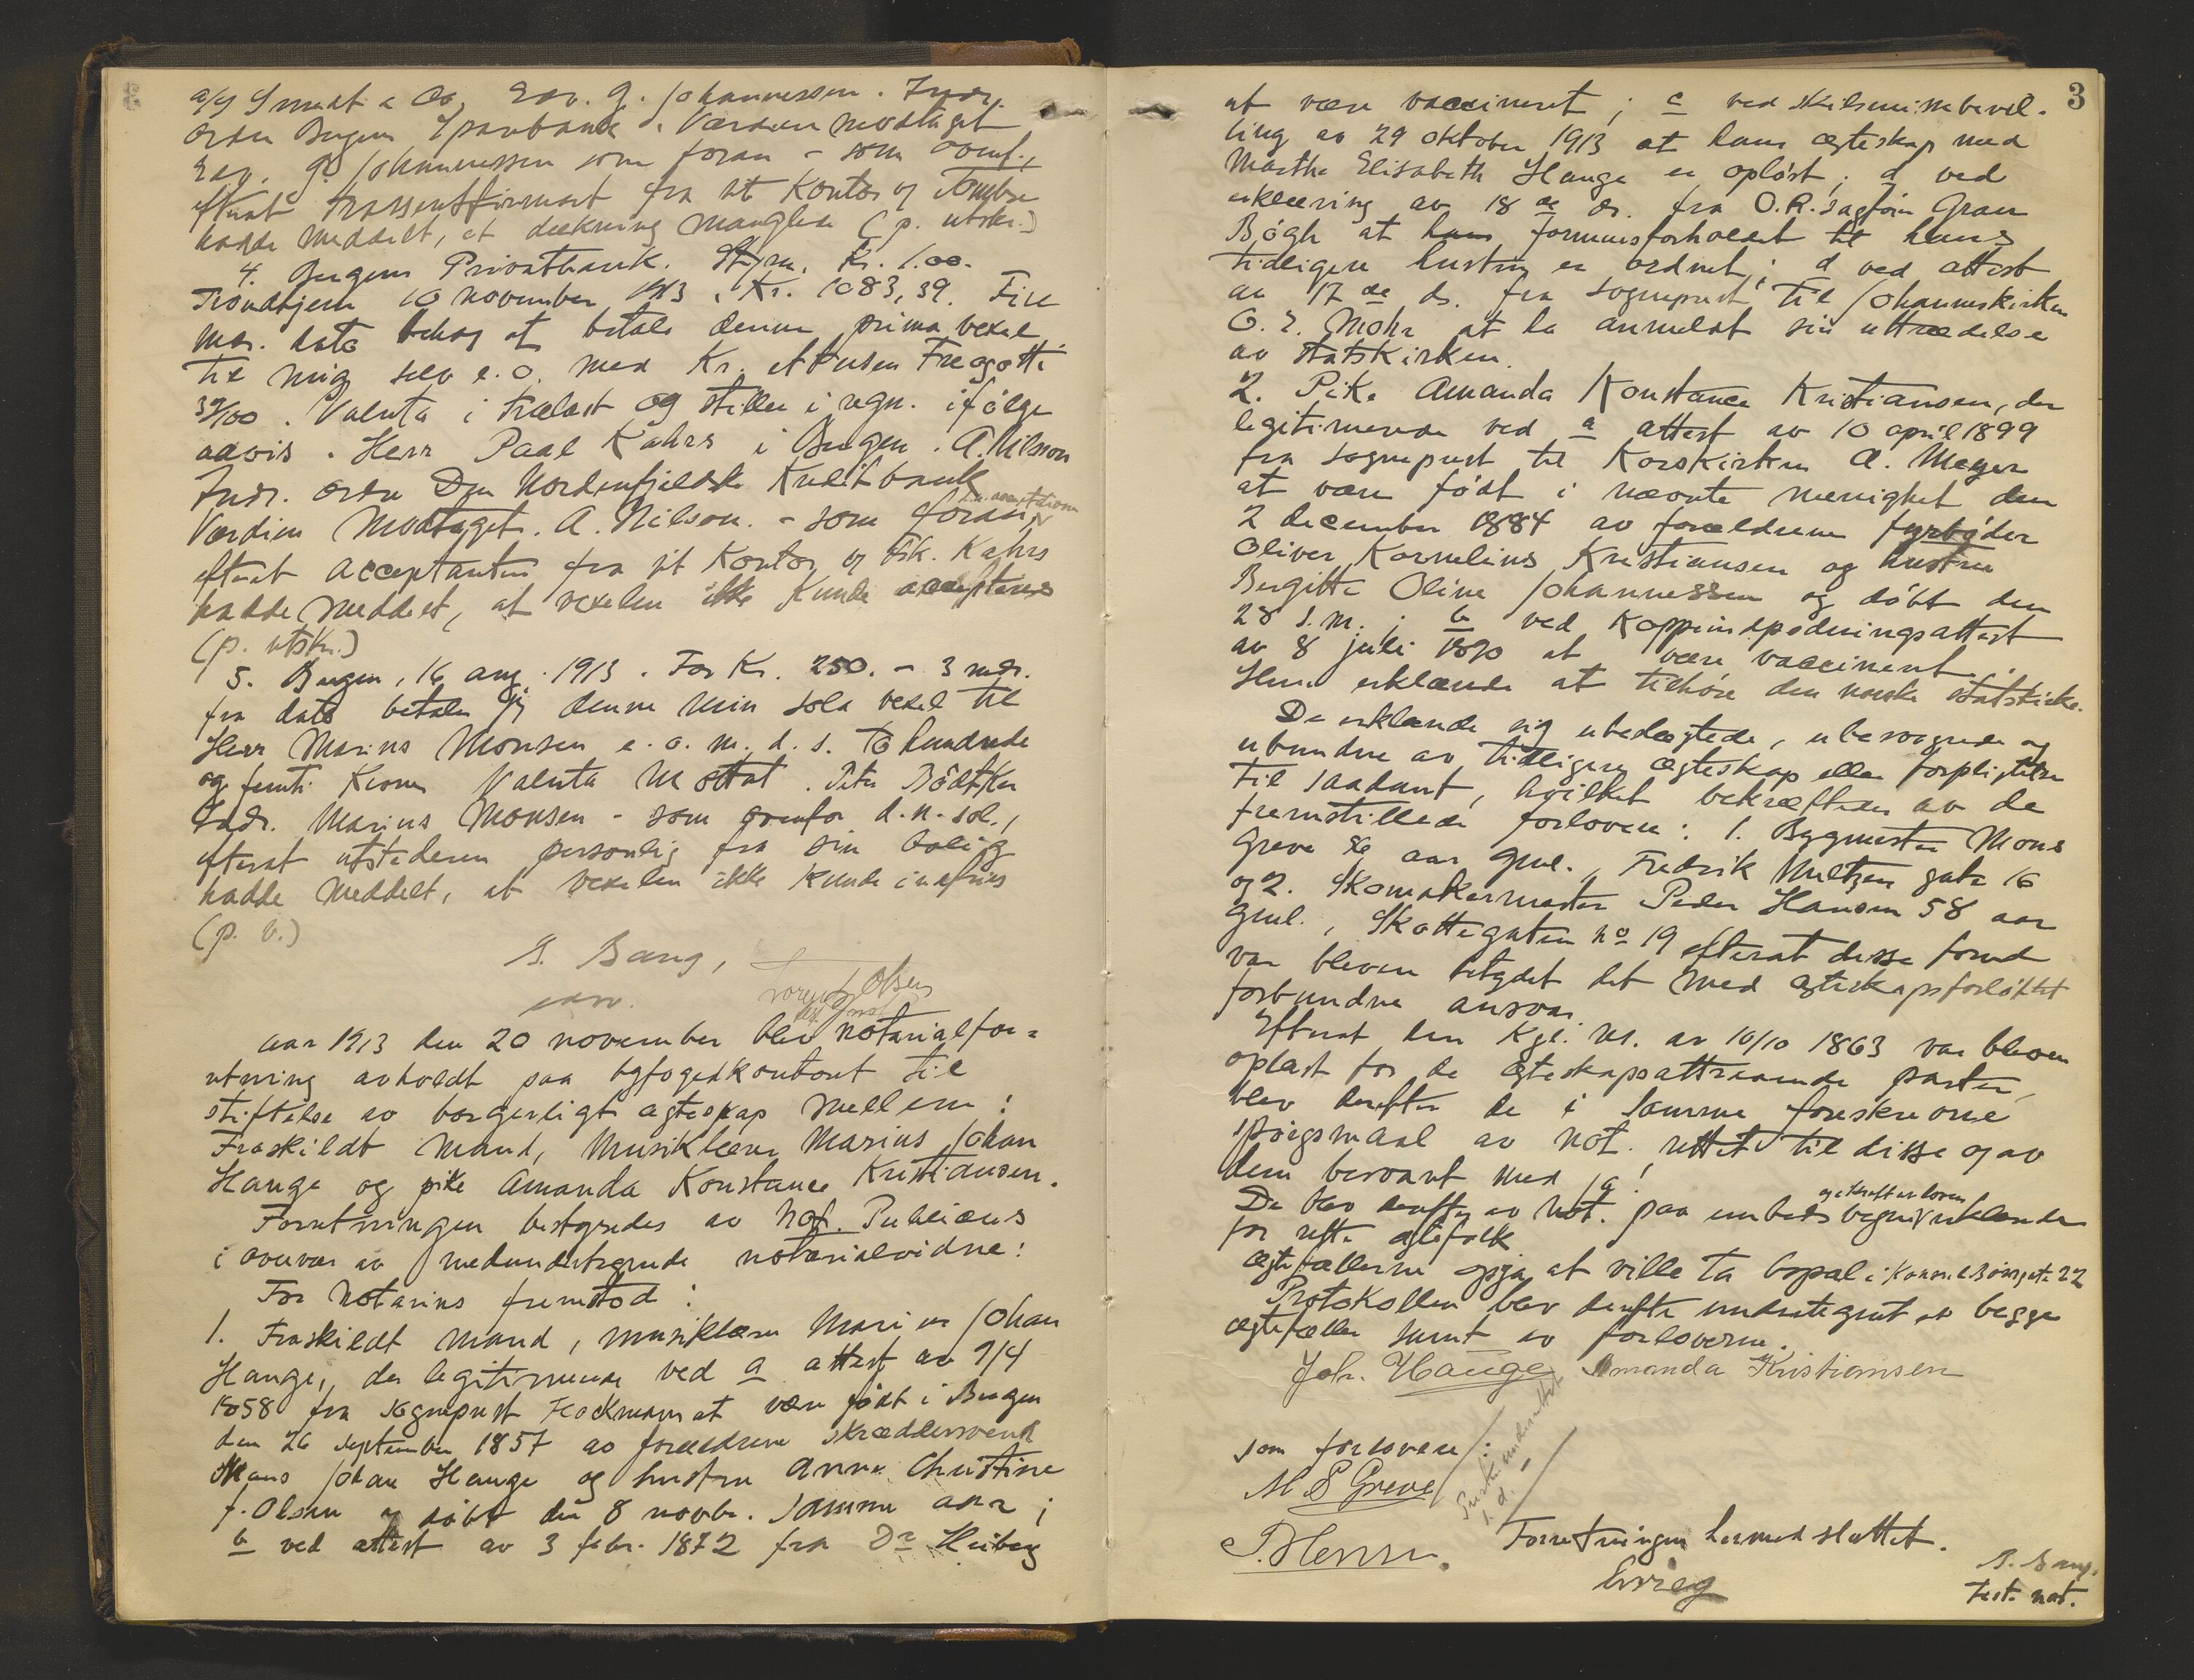 a/s Smidt & Co, Edv. G. Johannessen. Indr.
ordre Bergens Sparebank. Værdien modtaget
Edv. G. Johannessen som foran - som ovenf.,
efterat trassentfirmaet fra sit kontor og
hadde meddelt, at dækning mangler (p. utskr.)
4. Bergens Privatbank. Kr. 1.00.
Trondhjem 10 november 1913. Kr. 1083,39. Fire
mdr. dato behag at betale denne prima vexel
til mig selv e. o. med Kr. et tusen Treogotti
39/100. Valuta i trælast og stilles i regn. ifølge
advis. Herr Paal Kahrs i Bergen. A. Nilsson
Indr. ordre Den Nordenfjeldske Kreditbank
Værdien modtaget. A. Nilson. - som foran,
efterat acceptanten fra sit kontor v/ Fik. Kahrs
hadde meddelt, at vexelen ikke kunde accepteres
(p. utskr.)
5. Bergen, 16 aug. 1913. For Kr. 250. - 3 mdr.
fra dato betaler jeg denne min sola vexel til
Herr Marius Monsen e. o. m. d. s. To hundrede
og femti Kroner Valuta mottat. Peter Bødtker
Indr. Marius Monsen - som ovenfor d.n. sol.,
efterat utstederen personlig fra sin bolig
hadde meddelt, at vexelen ikke kunde indfries
(p. b.)
B. Bang,
Olsen
Aar 1913 den 20 november blev notarialfor-
retning avholdt paa byfogedkontoret til
stiftelse av borgerligt ægteskap mellem:
Fraskildt mand, musiklærer Marius Johan
Hauge og pike Amanda Konstance Kristiansen.
Forretningen bestyredes av Not. Publicus
i overvær av medundertegnede notarialvidne:
For Notarius fremstod:
1. Fraskildt mand, musiklærer Marius Johan
Hauge, der legitimerede ved a attest av 9/4
1858 fra sogneprest Hockmann at være født i Bergen
den 26 september 1857 av forældrene skræddersvend
Mons Johan Hauge og hustru Anne Christine
f. Olsen og døbt den 8 novbr. samme aar;
b ved attest av 3 febr. 1872 fra Dr Heiberg
3
at være vaccineret; c ved skilsmissebevil-
ling av 29 oktober 1913 at hans ægteskap med
Marthe Elisabeth Hauge er opløst; d ved
erklæring av 18 de ds. fra O.R. sagfører Gran
Bøgh at hans formuesforholdet til hans
tidligere hustru er ordnet; d ved attest
av 17 de ds. fra sogneprest til Johanneskirken
O. E. Mohr at ha anmeldt sin uttrædelse
av statskirken.
2. Pike Amanda Konstance Kristiansen, der
legitimerede ved a attest av 10 april 1899
fra sogneprest til Korskirken A. Meyer
at være født i nævnte menighet den
2 december 1884 av forældrene fyrbøder
Oliver Kornelius Kristiansen og hustru
Bergitte Oline Johannessen og døbt den
28 s.m.; b ved koppeindpodningsattest
av 8 juli 1890 at være vaccineret.
Hun erklærede at tilhøre den norske statskirke.
De erklærede sig ubeslægtede, ubesvogrede og
ubundne av tidligere ægteskap eller forpligtelse
til saadant, hvilket bekræftedes av de
fremstillede forlovere: 1. Bygmester Mons
Greve aar gml., Fredrik Meltzers gate 16
og 2. Skomakermester Peder Hansen 58 aar
gml., Skottegaten no 19 efterat disse forud
var bleven betydet det med ægteskapsforløftet
forbundne ansvar.
Efterat den Kgl. res. av 10/10 1863 var bleven
oplæst for de ægteskapsattraaende parter,
blev derefter de i samme foreskrevne
spørgsmaal av not. rettet til disse og av
dem besvart med ja!
De blev derefter av Not. paa embeds vegne og i kraft av loven erklærede
for rette ægtefolk
Ægtefællerne opga at ville ta bopæl i Konsul Børsgate 22
Protokollen blev derefter undertegnet av begge
ægtefæller samt av forloverne.
Joh. Hauge Amanda Kristiansen
som forlovere:
M S Greve
P. Hansen.
Forretningen hermed sluttet.
B. Bang.
Test. not.